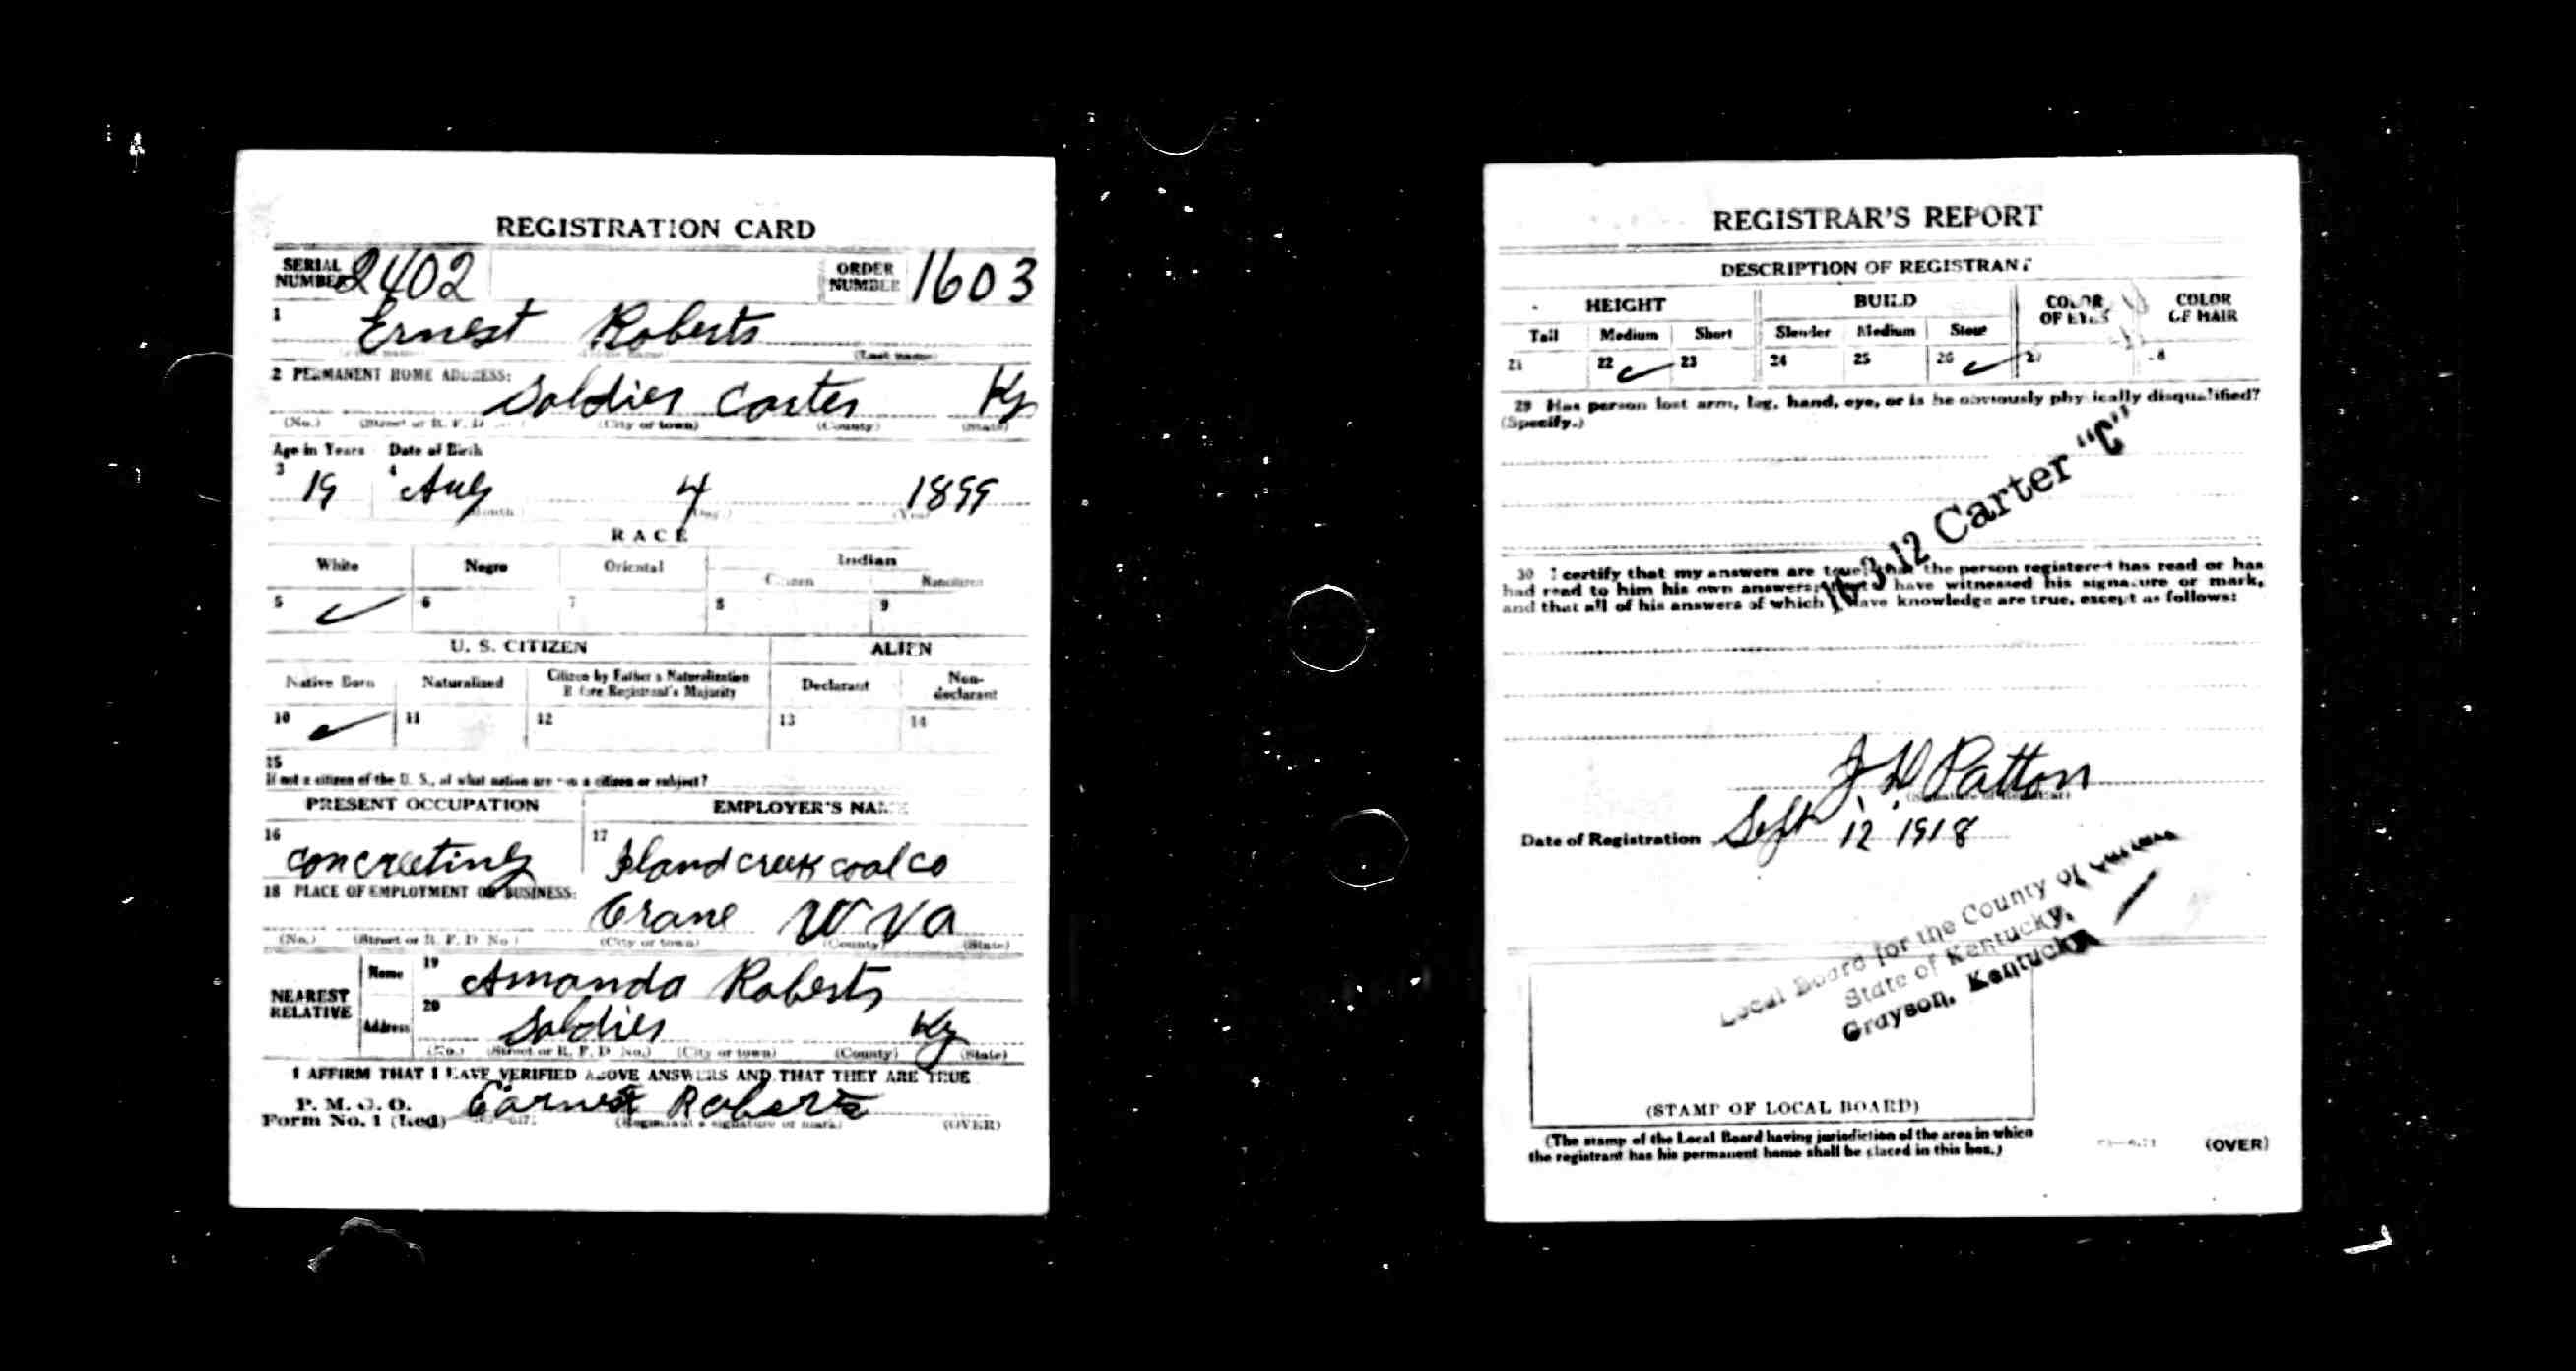 REGISTRATION CARD
SERIAL NUMBER 2402 ORDER NUMBER 1603
1 Ernest Roberts
(Last name)
2 PERMANENT HOME ADDRESS: Soldier Carter Ky
(No.) (Street or R. F. D (City or town) (County) (State)
Age in Years Date of Birth
3 19 4 Aug 4 1899
(Month) (Day) (Year)
RACE
White Negro Oriental Indian
Citizen Noncitizen
5 ✓ 6 7 8 9
U. S. CITIZEN ALIEN
Native Born Naturalized Citizen by Father's Naturalization Before Registrant's Majority Declarant Non-declarant
10 ✓ 11 12 13 14
15
If not a citizen of the U. S., of what nation are you a citizen or subject?
PRESENT OCCUPATION EMPLOYER'S NAME
16 concreeting 17 Island creek coal co
18 PLACE OF EMPLOYMENT OR BUSINESS:
Crane W VA
(No.) (Street or R. F. D No.) (City or town) (County) (State)
NEAREST RELATIVE Name 19 Amanda Roberts
Address 20 Soldier Ky
(No.) (Street or R. F. D No.) (City or town) (County) (State)
I AFFIRM THAT I HAVE VERIFIED ABOVE ANSWERS AND THAT THEY ARE TRUE
P. M. G. O.
Form No. 1 (Red) Earnest Roberts
(Registrant's signature or mark) (OVER)
REGISTRAR'S REPORT
DESCRIPTION OF REGISTRANT
HEIGHT BUILD COLOR OF EYES COLOR OF HAIR
Tall Medium Short Slender Medium Stout
21 22 ✓ 23 24 25 26 ✓ 27 28
29 Has person lost arm, leg, hand, eye, or is he obviously physically disqualified?
(Specify.)
16-3-12 Carter "C"
30 I certify that my answers are true; that the person registered has read or has
had read to him his own answers; that I have witnessed his signature or mark,
and that all of his answers of which I have knowledge are true, except as follows:
J H Patton
(Signature of Registrar)
Date of Registration Sept 12 1918
Local Board for the County of Carter
State of Kentucky,
Grayson, Kentucky
(STAMP OF LOCAL BOARD)
(The stamp of the Local Board having jurisdiction of the area in which
the registrant has his permanent home shall be placed in this box.)
(OVER)